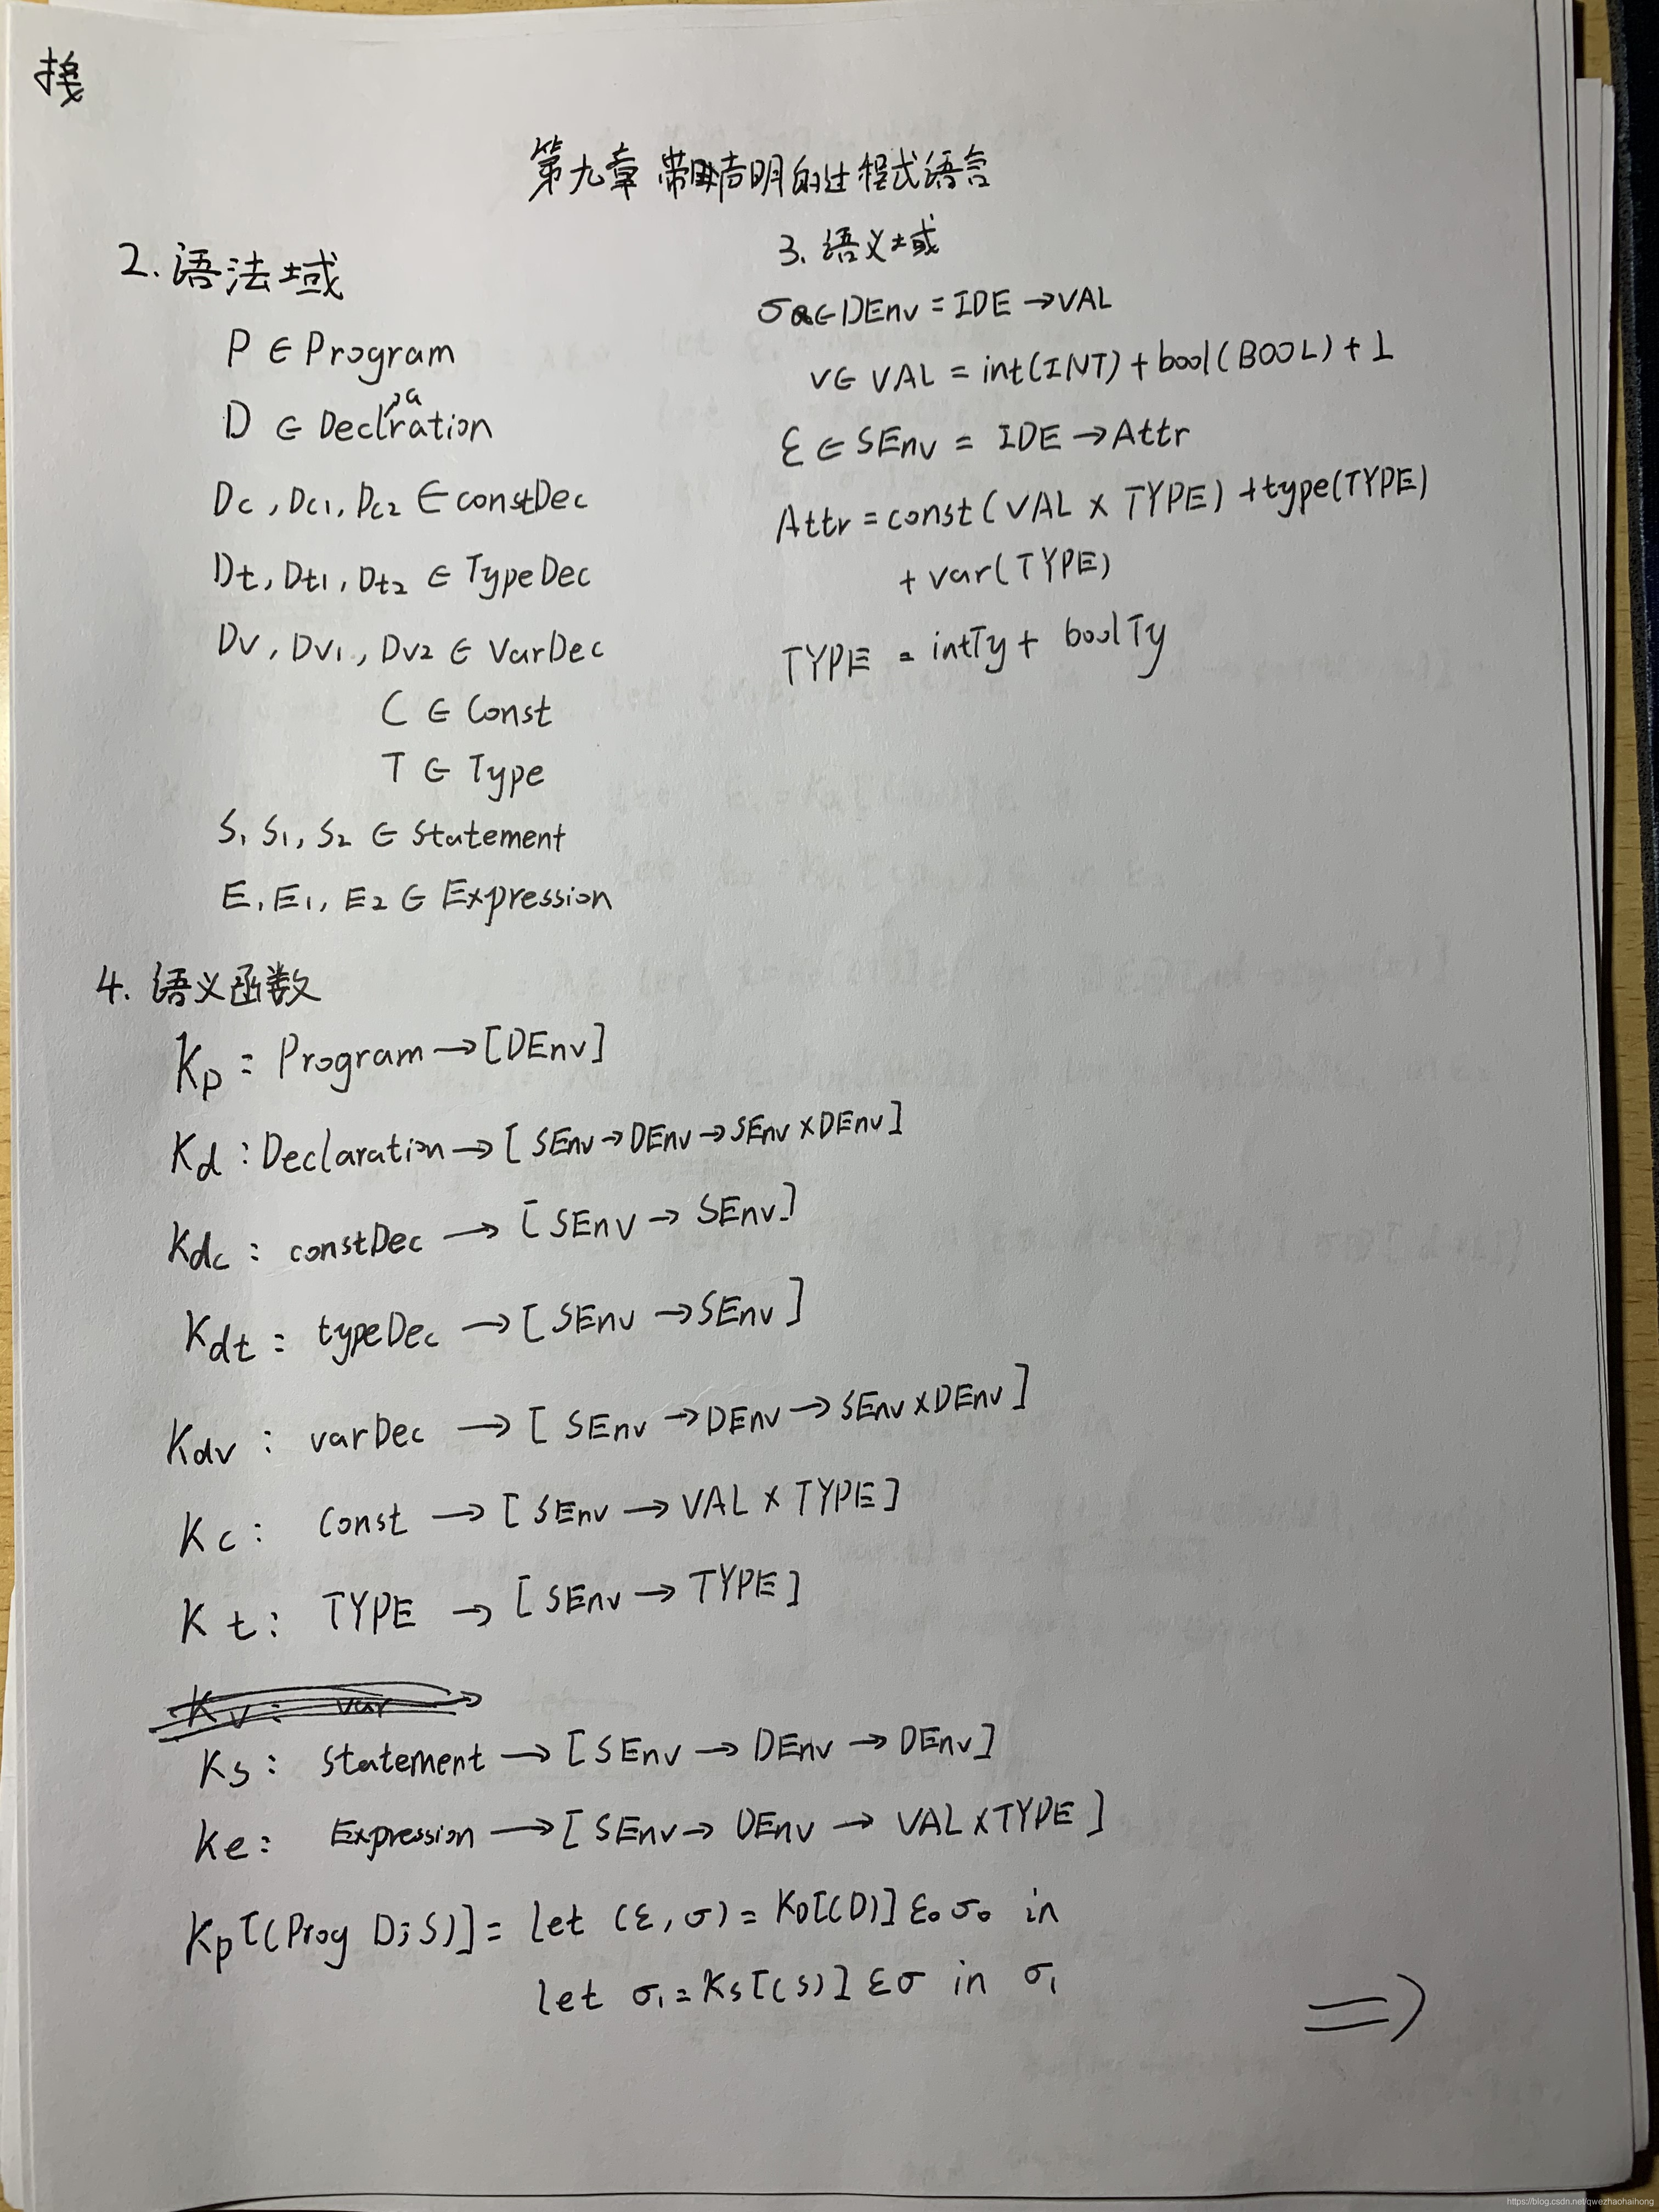 第九章 带声明的过程式语言
2. 语法域
P ∈ Program
D ∈ Declaration
Dc, Dc1, Dc2 ∈ constDec
Dt, Dt1, Dt2 ∈ TypeDec
Dv, Dv1, Dv2 ∈ VarDec
C ∈ Const
T ∈ Type
S, S1, S2 ∈ Statement
E, E1, E2 ∈ Expression
3. 语义域
σ ∈ DEnv = IDE → VAL
v ∈ VAL = int(INT) + bool(BOOL) + ⊥
ε ∈ SEnv = IDE → Attr
Attr = const(VAL × TYPE) + type(TYPE)
+ var(TYPE)
TYPE = intTy + boolTy
4. 语义函数
Kp : Program → [DEnv]
Kd : Declaration → [SEnv → DEnv → SEnv × DEnv]
Kdc : constDec → [SEnv → SEnv]
Kdt : typeDec → [SEnv → SEnv]
Kdv : varDec → [SEnv → DEnv → SEnv × DEnv]
Kc : Const → [SEnv → VAL × TYPE]
Kt : TYPE → [SEnv → TYPE]
Kv : var
Ks : Statement → [SEnv → DEnv → DEnv]
Ke : Expression → [SEnv → DEnv → VAL × TYPE]
Kp[(Prog D;S)] = let (ε, σ) = KD[(D)] ε0 σ0 in
let σ1 = Ks[(S)] εσ in σ1
⇒
https://blog.csdn.net/qwezhaohaihong